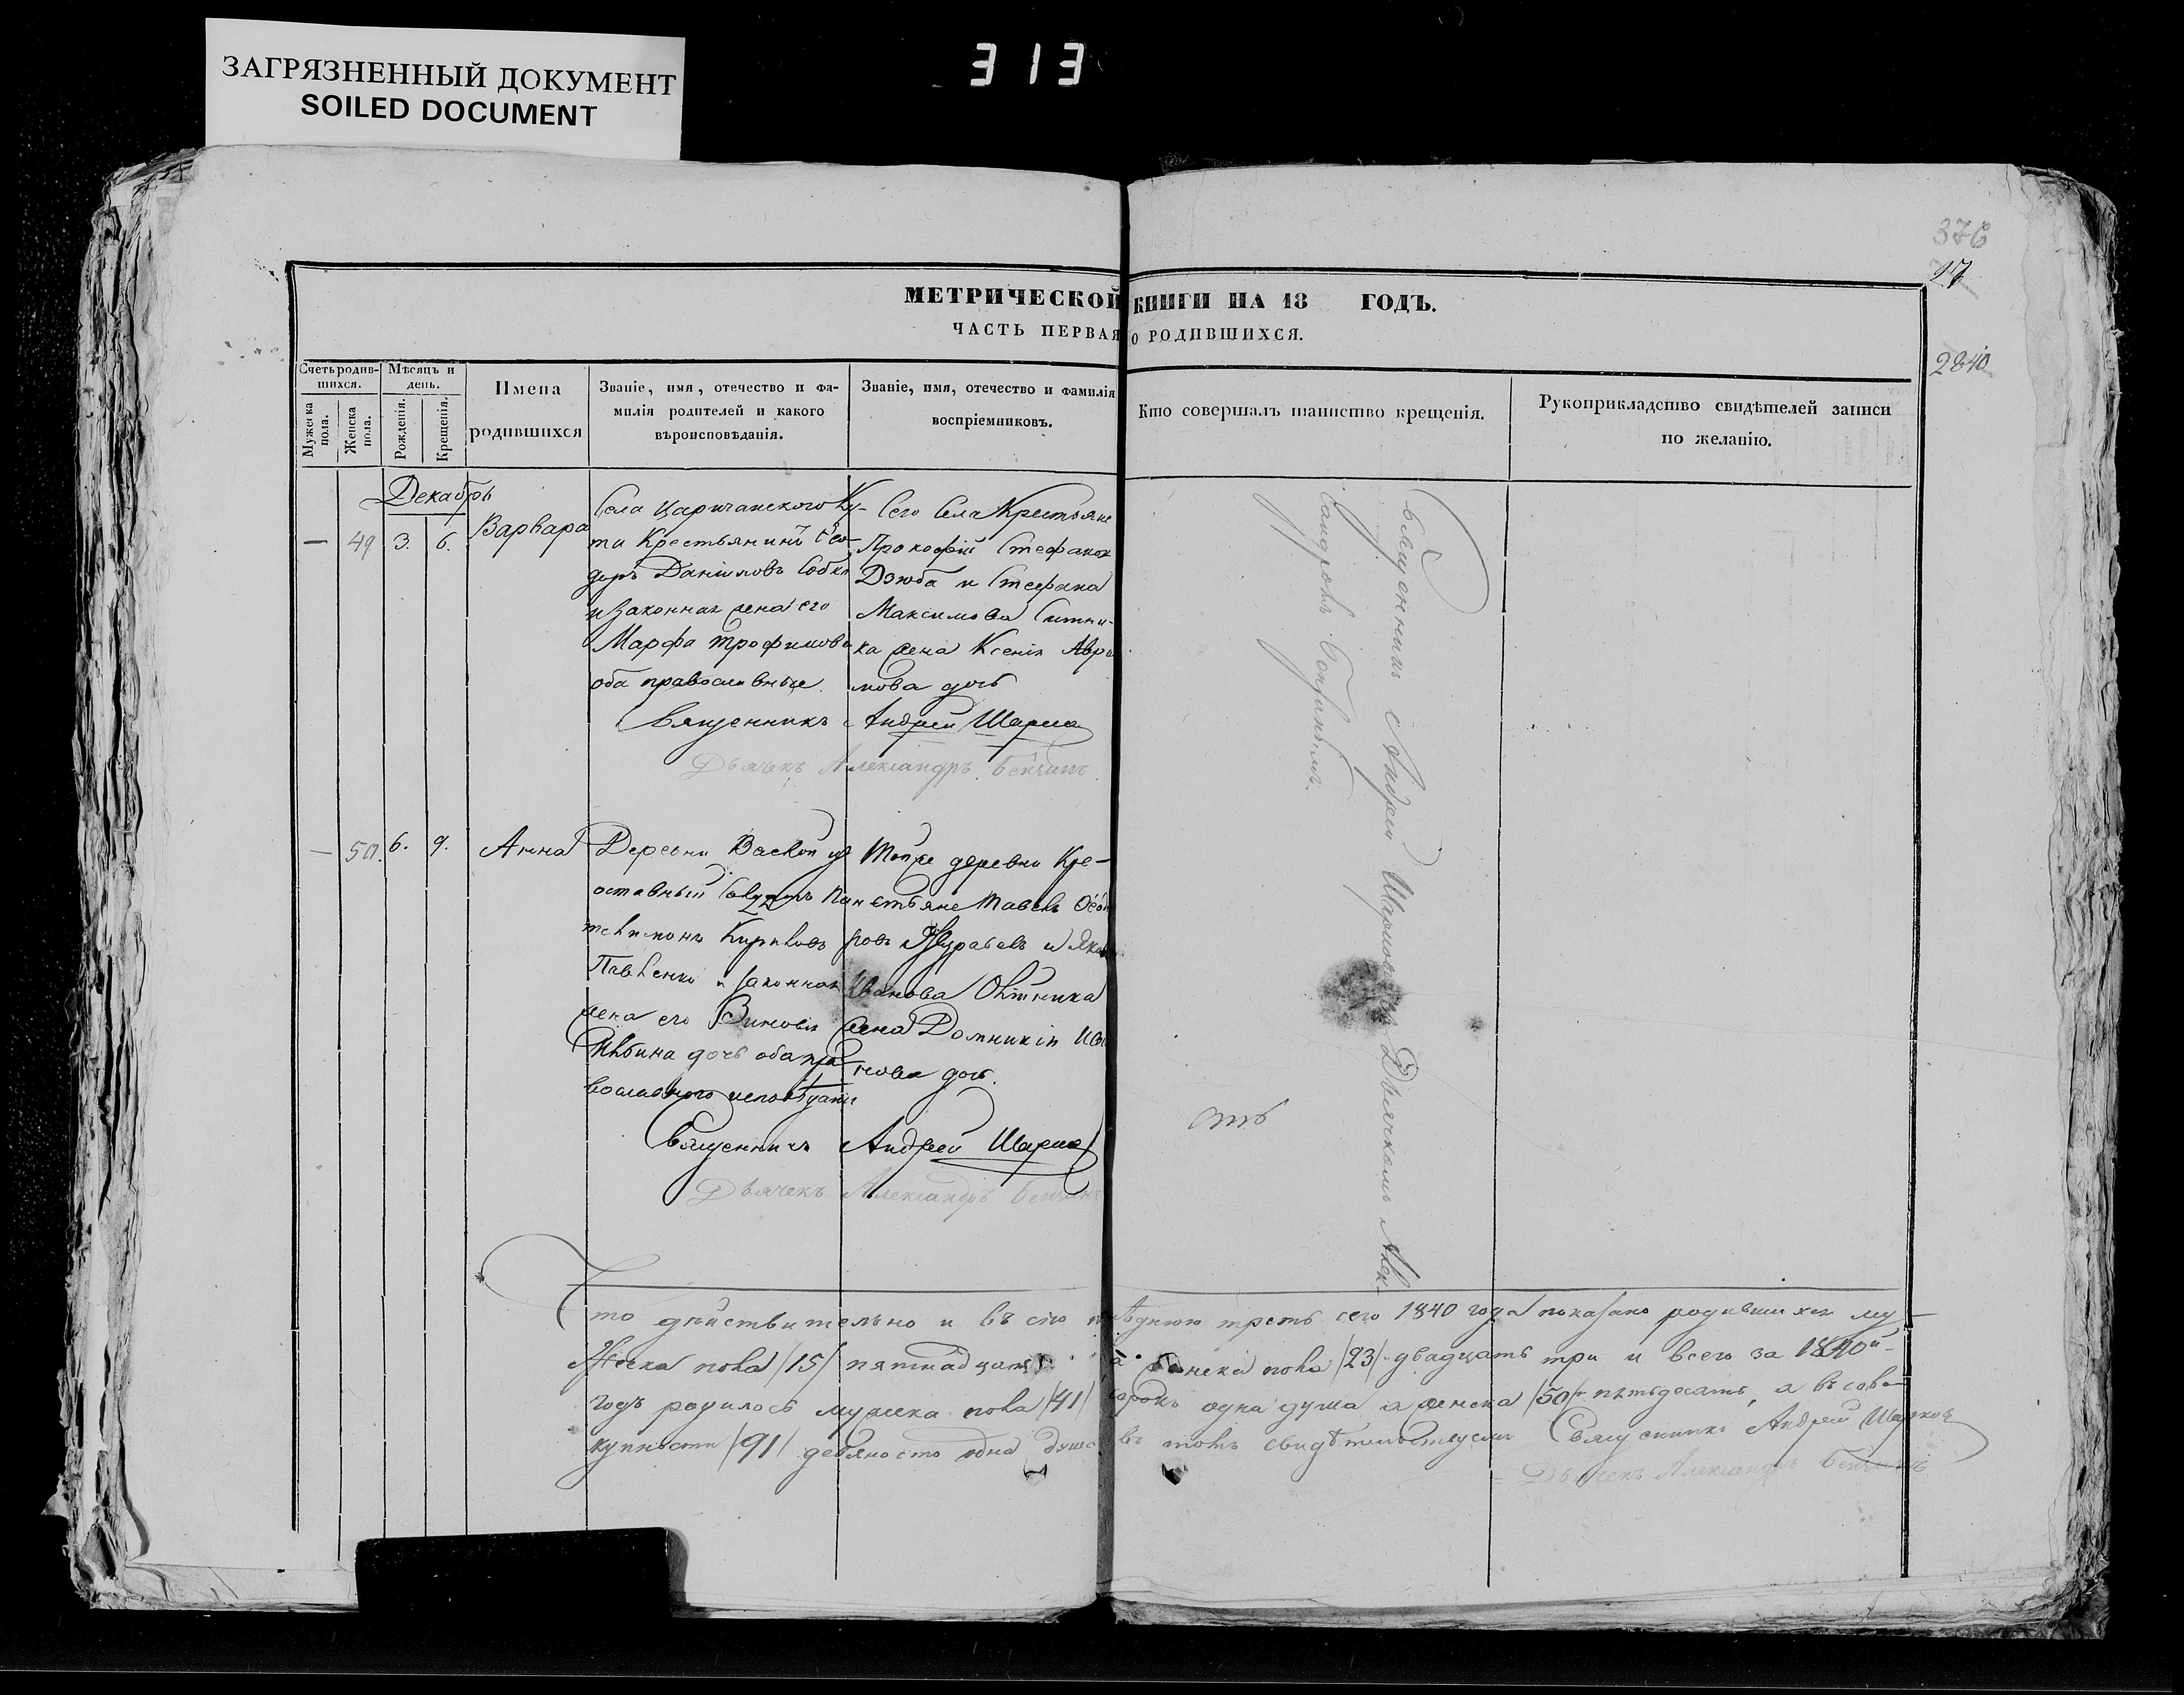 ЗАГРЯЗНЕННЫЙ ДОКУМЕНТ
SOILED DOCUMENT
313
376
27
2840
МЕТРИЧЕСКОЙ КНИГИ НА 18 ГОДЪ.
ЧАСТЬ ПЕРВАЯ О РОДИВШИХСЯ.
Счетъ родив-
шихся.
Мужеска пола.
Женска пола.
Мѣсяцъ и
день.
Рожденія.
Крещенія.
Имена
родившихся
Званіе, имя, отечество и фа-
милія родителей и какого
вѣроисповѣданія.
Званіе, имя, отечество и фамилія
воспріемниковъ.
Кто совершалъ таинство крещенія.
Рукоприкладство свидѣтелей записи
по желанію.
Декабрь
— 49 3. 6. Варвара
Села Царичанского Ку-
ти Крестьянинъ Ѳео-
доръ Даніиловъ Собко
и законная жена его
Марфа Трофимова
оба православные
Сего Села Крестьяне
Прокофій Стефанов
Дзюба и Стефана
Максимова Ситни-
ка жена Ксенія Авра
мова дочь
Священникъ Андрей
Дьячекъ Александръ
— 50. 6. 9. Анна
Деревни
оставный
Кириловъ
Павленко и законная
жена его Зиновія
дочь оба пра-
вославного исповѣданія
Тойже деревни Кре-
стьяне Павелъ
ровъ Журавель и
Иванова
жена Домникія Ива
нова дочь.
Священникъ Андрей
Дьячекъ Александръ
Священникъ Андрей Дьячкомъ Алек-
сандромъ
Что дѣйствительно и въ сію треть сего 1840 года показано родившихся му-
жеска пола /15/ пятнадцать а женска пола /23/ двадцать три и всего за 1840й
годъ родилось мужеска пола /41/ сорокъ одна душа а женска /50/ пятьдесятъ, а въ сово-
купности /91/ девяносто одна душа въ томъ свидѣтельствуемъ Священникъ Андрей
Дьячекъ Александръ